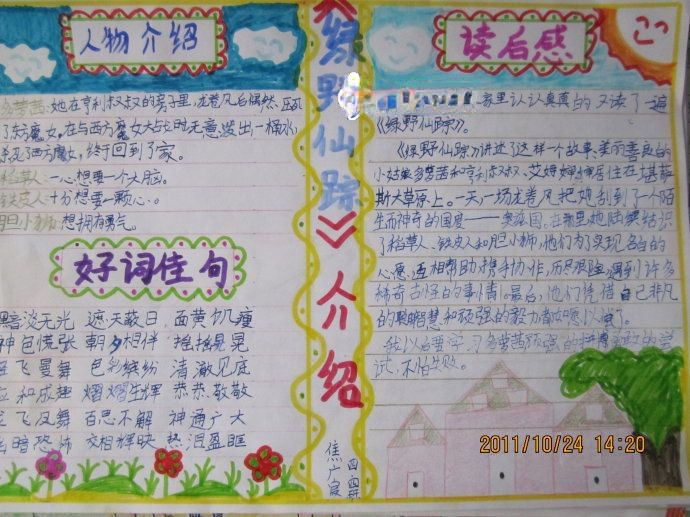 人物介绍
多萝茜:她在亨利叔叔的房子里,龙卷风后偶然
了东方魔女,在与西方魔女大战时无意泼出一桶水
杀死了西方魔女,终于回到了家。
稻草人:一心想要一个大脑。
铁皮人:十分想要一颗心。
胆小狮:想拥有勇气。
好词佳句
黯淡无光 遮天蔽日 面黄饥瘦
神色慌张 朝夕相伴 摇摇晃晃
飞曼舞 色彩缤纷 清澈见底
应和成趣 熠熠生辉 恭恭敬敬
龙飞凤舞 百思不解 神通广大
幽暗恐怖 交相辉映 热泪盈眶
《绿野仙踪》介绍
四四班
焦广宸
读后感
家里认认真真的又读了一遍
《绿野仙踪》。
《绿野仙踪》讲述了这样一个故事:美丽善良的
小姑娘多萝茜和亨利叔叔、艾姆婶婶居住在堪萨
斯大草原上。一天一场龙卷风把她刮到了一个陌
生而神奇的国度——奥芝国。在那里她陆续结识
了稻草人、铁皮人和胆小狮,他们为了实现各自的
心愿,互相帮助携手协作,历尽艰险,遇到许多
稀奇古怪的事情。最后,他们凭借自己非凡
的聪明智慧和顽强的毅力都如愿以偿了。
我以后要学习多萝茜顽强的拼搏勇敢的尝
试,不怕失败。
2011/10/24 14:20